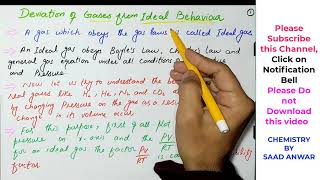 Deviation of Gases from Ideal Behaviour
→ A gas which obeys the gas laws is called Ideal gas
An Ideal gas obeys Boyle's Law, Charles's Law and
general gas equation under all conditions of
and Pressure
→ Now let us try to understand the
real gases like H₂, He, N₂ and CO₂
by changing Pressure on the gas as a
change in its volume occur.
→ For this purpose, first g all plot
pressure on x-axis and the PV/RT
for an ideal gas the factor PV/RT is
factor
Please
Subscribe
this Channel,
Click on
Notification
Bell
Please Do
not
Download
this video
CHEMISTRY
BY
SAAD ANWAR